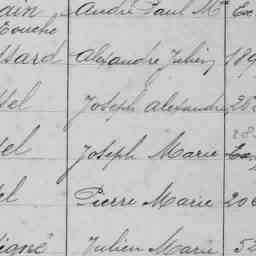 ain André Paul Mie
Touche
ssard Alexandre Julien 189
sel Joseph Alexandre 26
28
el Joseph Marie
el Pierre Marie 206
igné Julien Marie 52